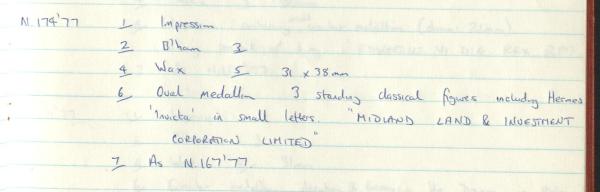 N.174'77 1 Impression
2 B'ham 3
4 Wax 5 31 x 38mm
6 Oval medallion 3 standing classical figures including Hermes
'Invicta' in small letters. "MIDLAND LAND & INVESTMENT
CORPORATION LIMITED"
7 As N.167'77.